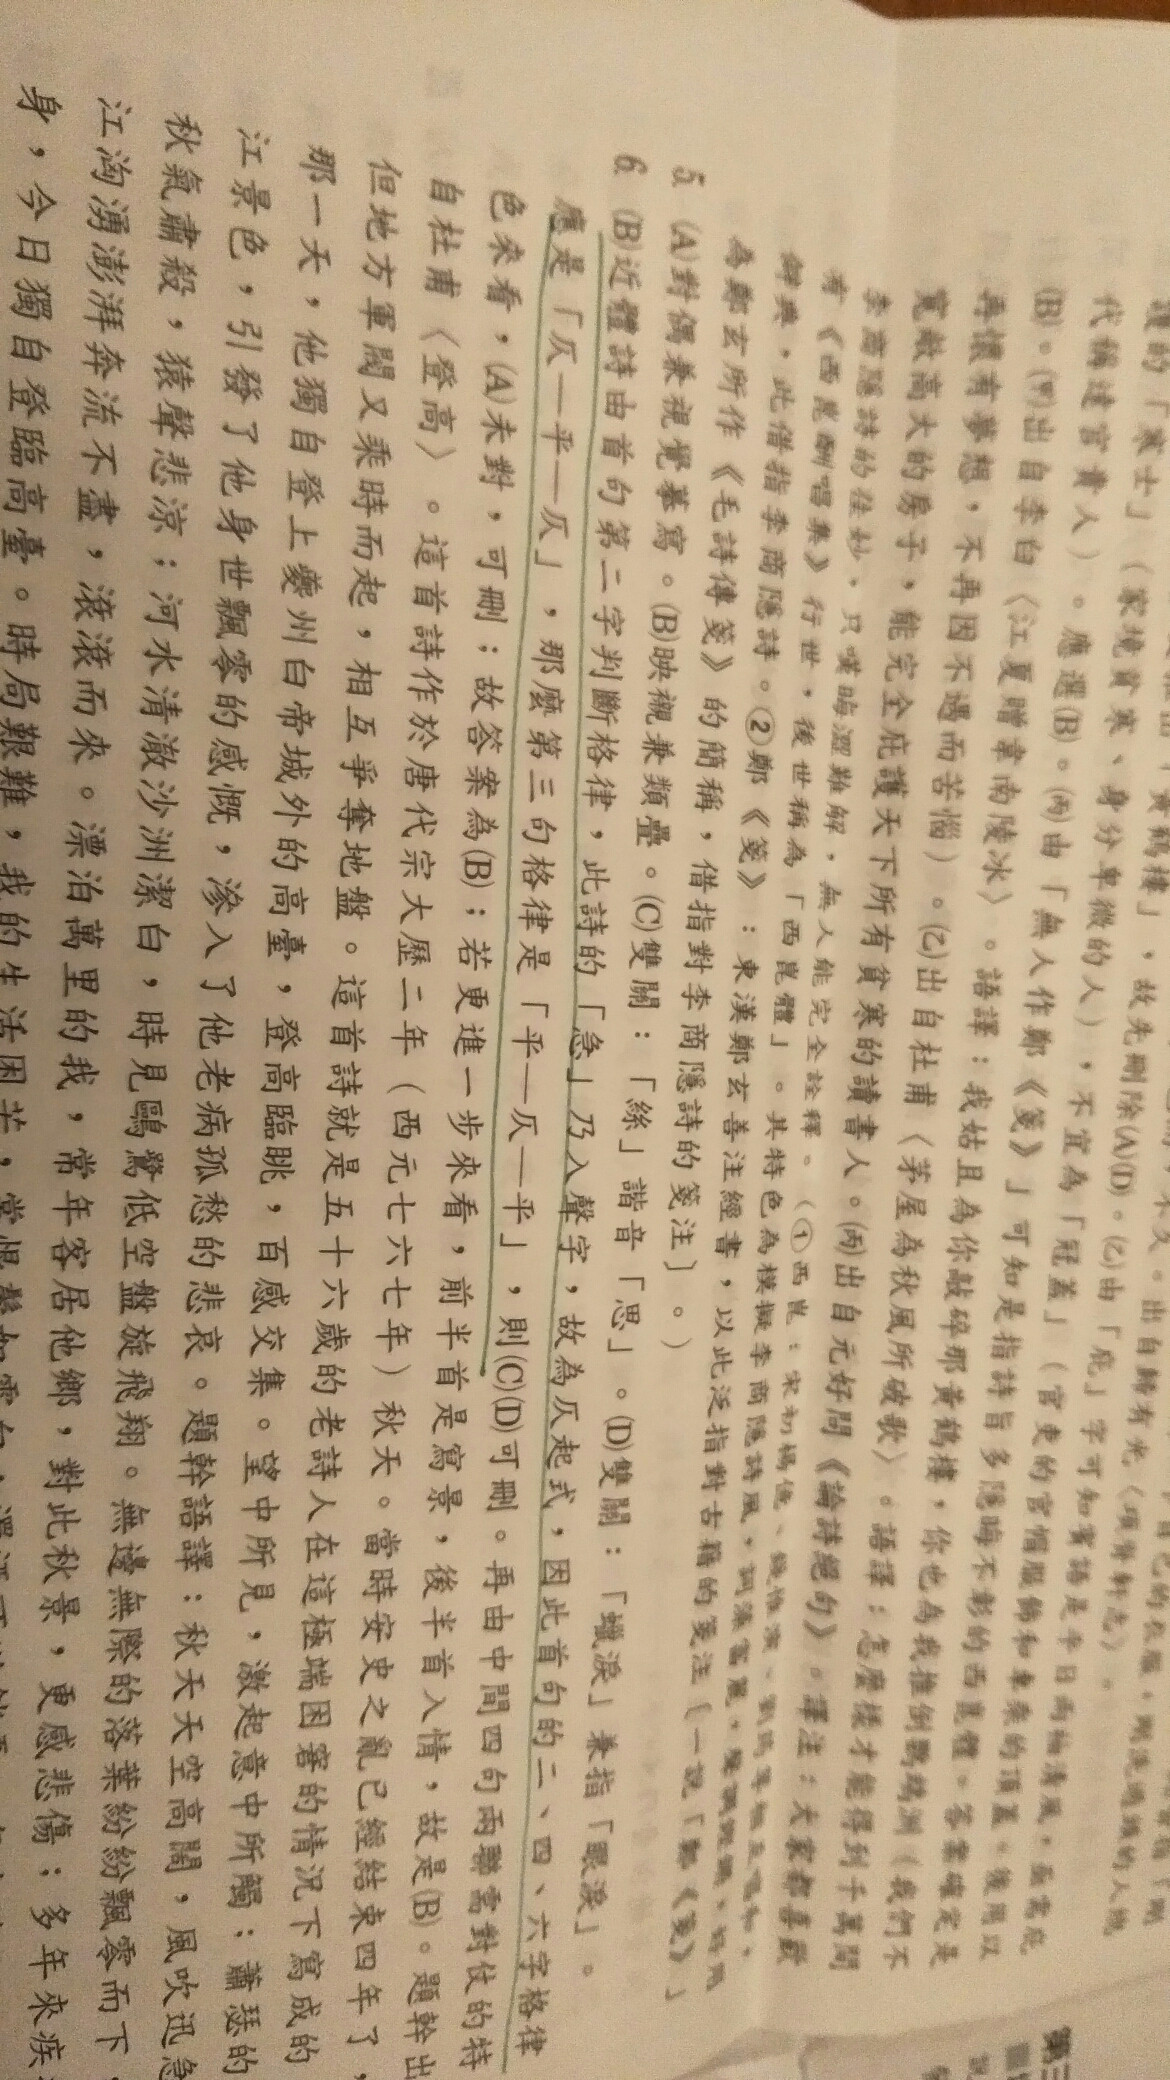 代稱達官貴人）。應選(B)。(丙)由「無人作鄭《箋》」可知是指詩旨多隱晦不彰的西崑體。答案確定是
(B)。(甲)出自李白〈江夏贈韋南陵冰〉。語譯：我姑且為你敲碎那黃鶴樓，你也為我推倒鸚鵡洲（我們不
再懷有夢想，不再因不遇而苦惱）。(乙)出自杜甫〈茅屋為秋風所破歌〉。語譯：怎麼樣才能得到千萬間
寬敞高大的房子，能完全庇護天下所有貧寒的讀書人。(丙)出自元好問《論詩絕句》。譯注：大家都喜歡
李商隱詩的佳妙，只嘆晦澀難解，無人能完全詮釋。（①西崑：宋初楊億、錢惟演、劉筠等相互唱和，
有《西崑酬唱集》行世，後世稱為「西崑體」。其特色為模擬李商隱詩風，詞藻富麗，聲調鏗鏘，好用
僻典，此借指李商隱詩。②鄭《箋》：東漢鄭玄善注經書，以此泛指對古籍的箋注〔一說「鄭《箋》」
為鄭玄所作《毛詩傳箋》的簡稱，借指對李商隱詩的箋注〕。）
5 (A)對偶兼視覺摹寫。(B)映襯兼類疊。(C)雙關：「絲」諧音「思」。(D)雙關：「蠟淚」兼指「眼淚」。
6 (B)近體詩由首句第二字判斷格律，此詩的「急」乃入聲字，故為仄起式，因此首句的二、四、六字格律
應是「仄—平—仄」，那麼第三句格律是「平—仄—平」，則(C)(D)可刪。再由中間四句兩聯需對仗的特
色來看，(A)未對，可刪；故答案為(B)；若更進一步來看，前半首是寫景，後半首入情，故是(B)。題幹出
自杜甫〈登高〉。這首詩作於唐代宗大歷二年（西元七六七年）秋天。當時安史之亂已經結束四年了，
但地方軍閥又乘時而起，相互爭奪地盤。這首詩就是五十六歲的老詩人在這極端困窘的情況下寫成的
那一天，他獨自登上夔州白帝城外的高臺，登高臨眺，百感交集。望中所見，激起意中所觸；蕭瑟的
江景色，引發了他身世飄零的感慨，滲入了他老病孤愁的悲哀。題幹語譯：秋天天空高闊，風吹迅急
秋氣肅殺，猿聲悲涼；河水清澈沙洲潔白，時見鷗鷺低空盤旋飛翔。無邊無際的落葉紛紛飄零而下，
江洶湧澎湃奔流不盡，滾滾而來。漂泊萬里的我，常年客居他鄉，對此秋景，更感悲傷；多年來疾
身，今日獨自登臨高臺。時局艱難，我的生活困苦，常恨鬢如霜白
第三